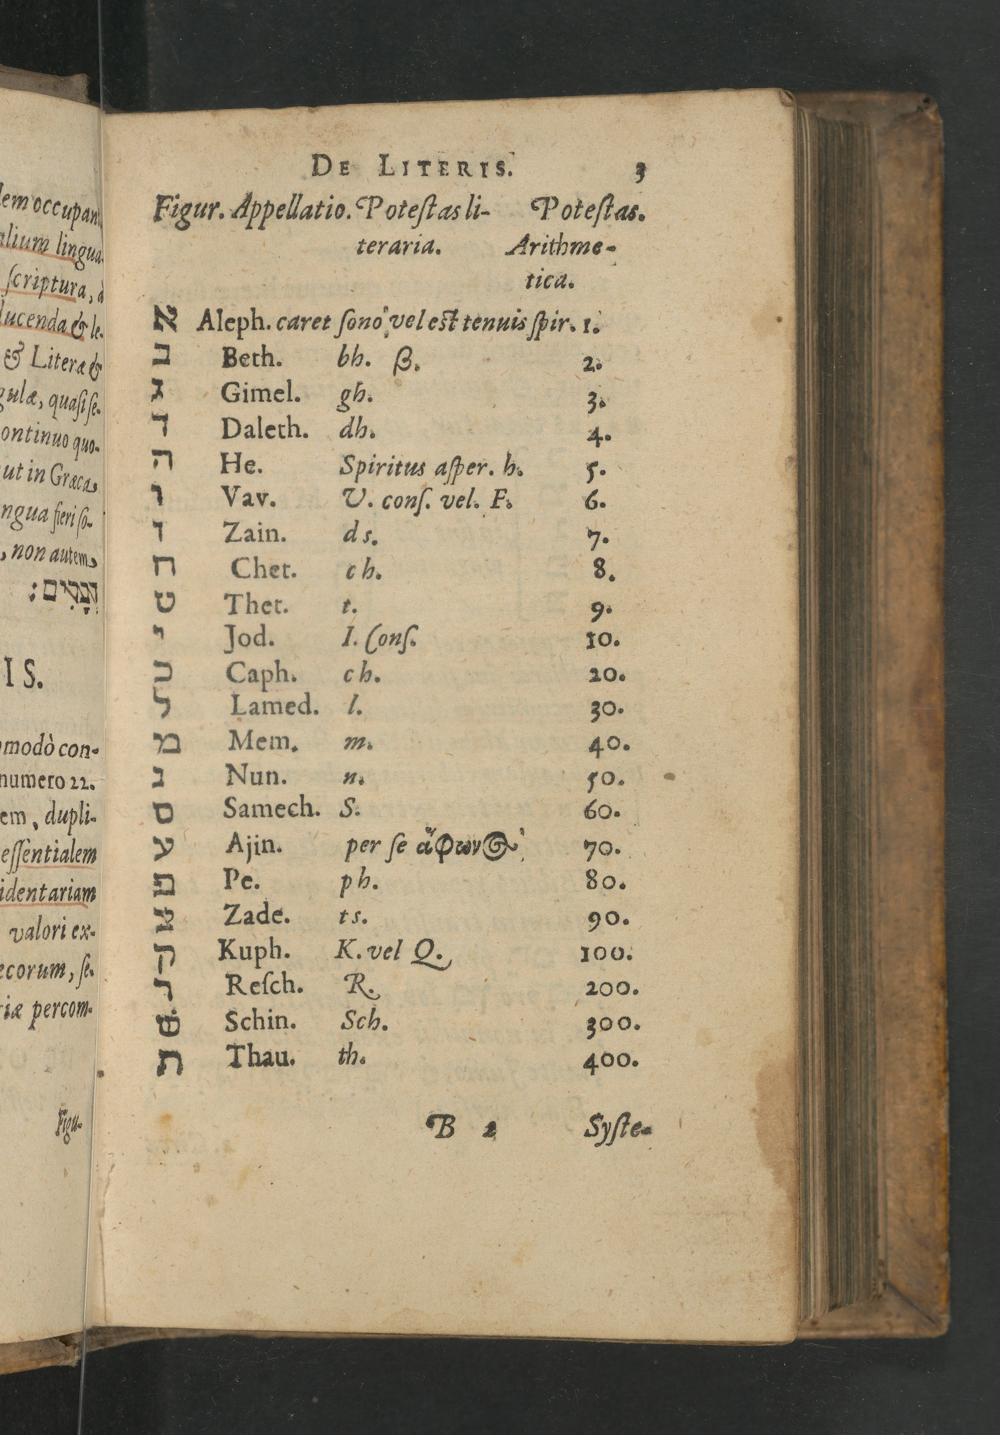 lem occupan
alium lingua
scriptura, à
ducenda & le-
& Literæ &
gulæ, quasi se-
ontinuo quo-
ut in Græca,
ngua fieri so-
, non autem,
הַבָּקִים:
IS.
modò con-
numero 22.
em, dupli-
essentialem
identariam
valori ex-
ecorum, se-
iæ percom-
Figu-
DE LITERIS. 3
Figur. Appellatio. Potestas li- Potestas.
teraria. Arithme-
tica.
א Aleph. caret sono vel est tenuis spir. 1.
ב Beth. bh. β. 2.
ג Gimel. gh. 3.
ד Daleth. dh. 4.
ה He. Spiritus asper. h. 5.
ו Vav. V. cons. vel. F. 6.
ז Zain. ds. 7.
ח Chet. ch. 8.
ט Thet. t. 9.
י Jod. I. Cons. 10.
כ Caph. ch. 20.
ל Lamed. l. 30.
מ Mem. m. 40.
נ Nun. n. 50.
ס Samech. S. 60.
ע Ajin. per se ἄφωνος 70.
פ Pe. ph. 80.
צ Zade. ts. 90.
ק Kuph. K. vel Q. 100.
ר Resch. R. 200.
שׁ Schin. Sch. 300.
ת Thau. th. 400.
B 2 Syste-